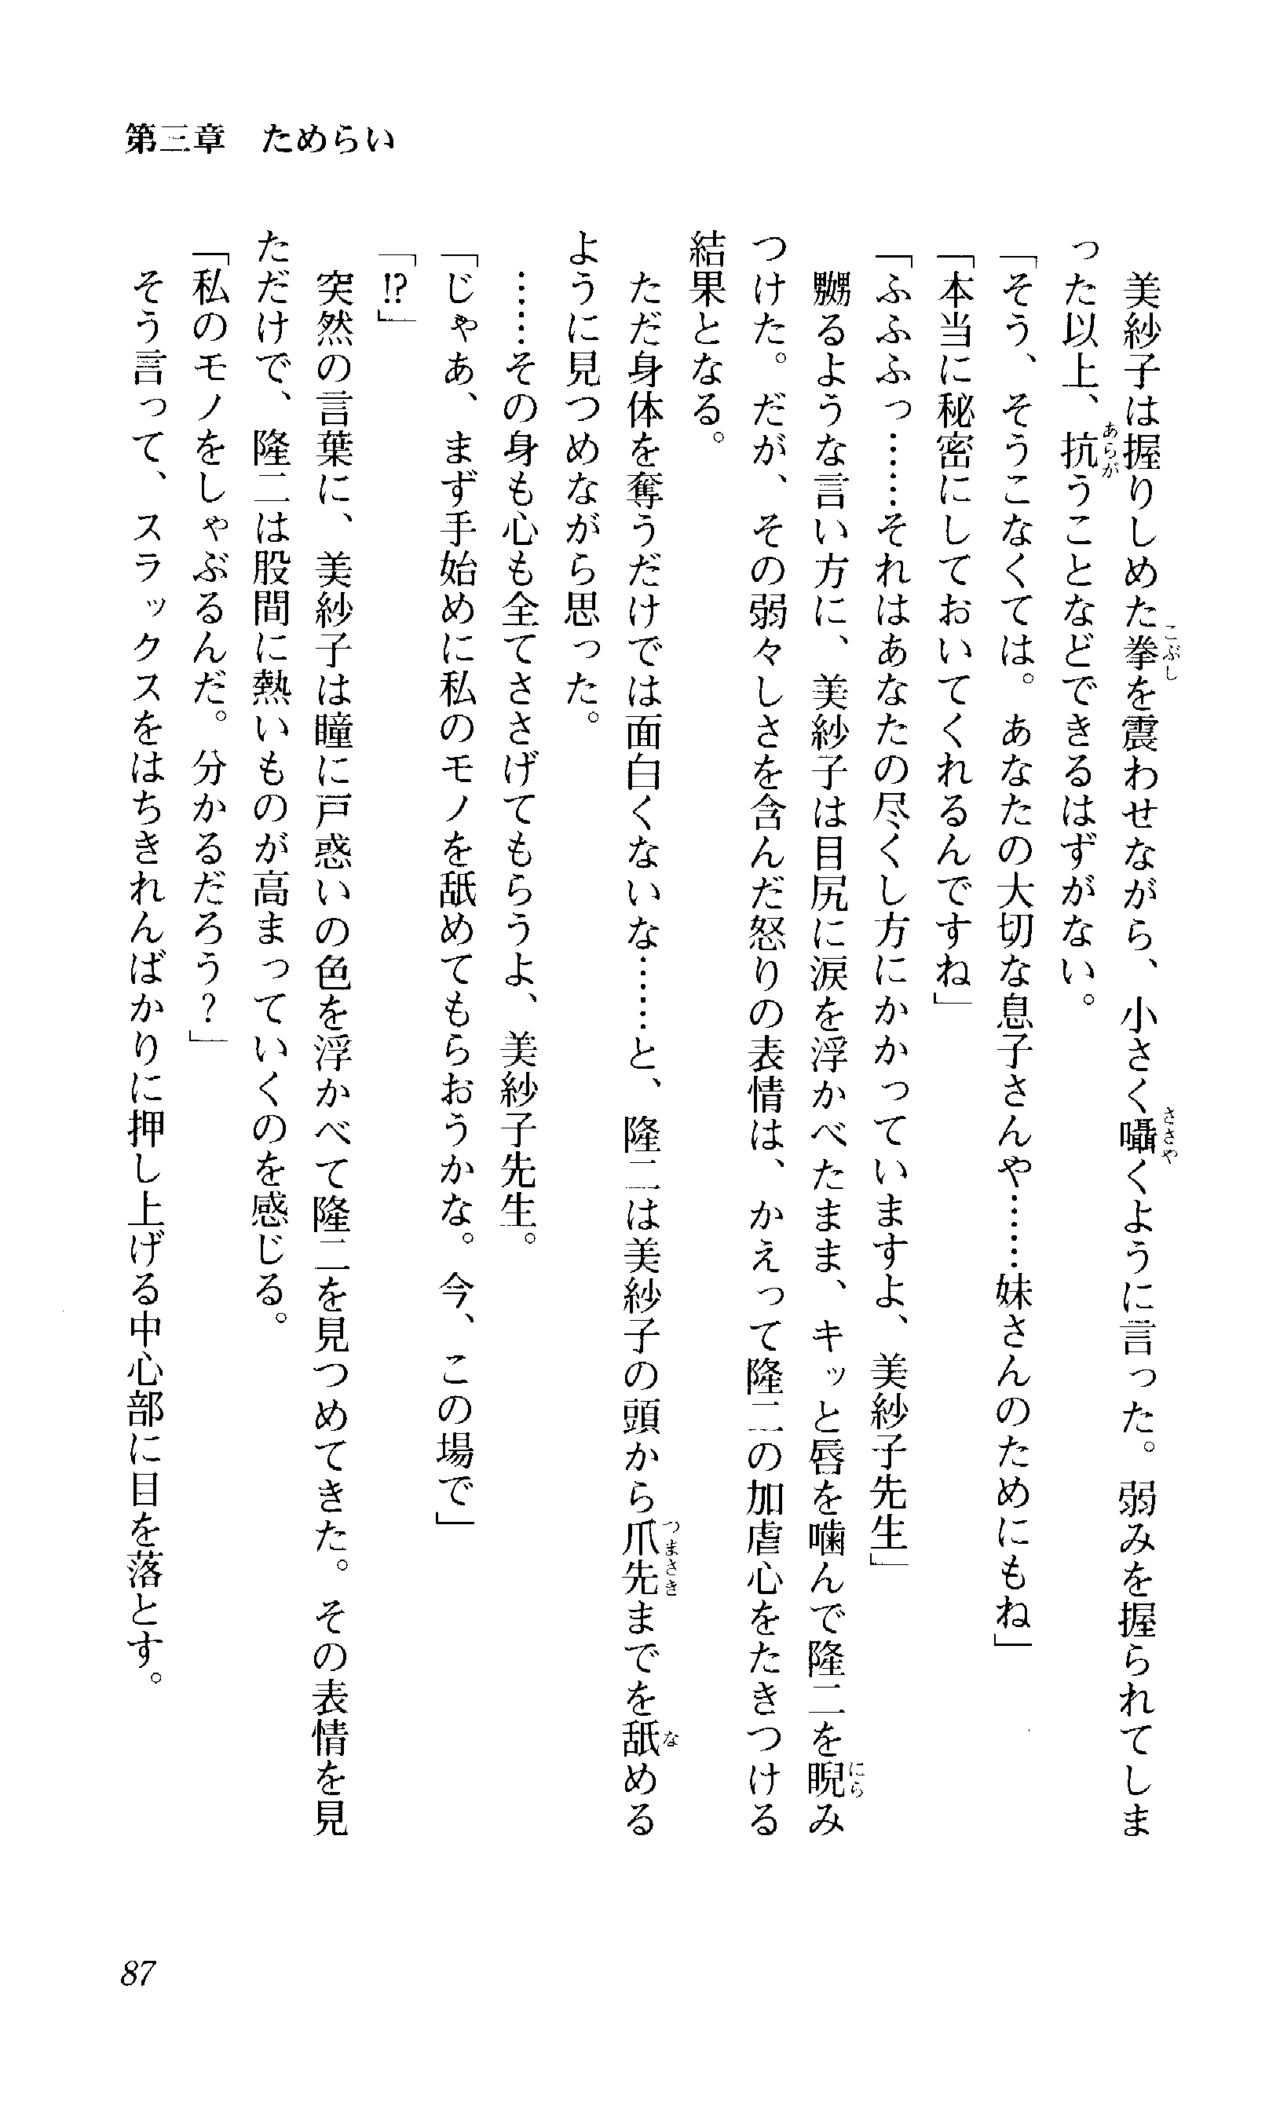 第三章　ためらい
　美紗子は握りしめた拳を震わせながら、小さく囁くように言った。弱みを握られてしま
った以上、抗うことなどできるはずがない。
「そう、そうこなくては。あなたの大切な息子さんや……妹さんのためにもね」
「本当に秘密にしておいてくれるんですね」
「ふふふっ……それはあなたの尽くし方にかかっていますよ、美紗子先生」
　嬲るような言い方に、美紗子は目尻に涙を浮かべたまま、キッと唇を噛んで隆二を睨み
つけた。だが、その弱々しさを含んだ怒りの表情は、かえって隆二の加虐心をたきつける
結果となる。
　ただ身体を奪うだけでは面白くないな……と、隆二は美紗子の頭から爪先までを舐める
ように見つめながら思った。
　……その身も心も全てささげてもらうよ、美紗子先生。
「じゃあ、まず手始めに私のモノを舐めてもらおうかな。今、この場で」
「!?」
　突然の言葉に、美紗子は瞳に戸惑いの色を浮かべて隆二を見つめてきた。その表情を見
ただけで、隆二は股間に熱いものが高まっていくのを感じる。
「私のモノをしゃぶるんだ。分かるだろう？」
　そう言って、スラックスをはちきれんばかりに押し上げる中心部に目を落とす。
87